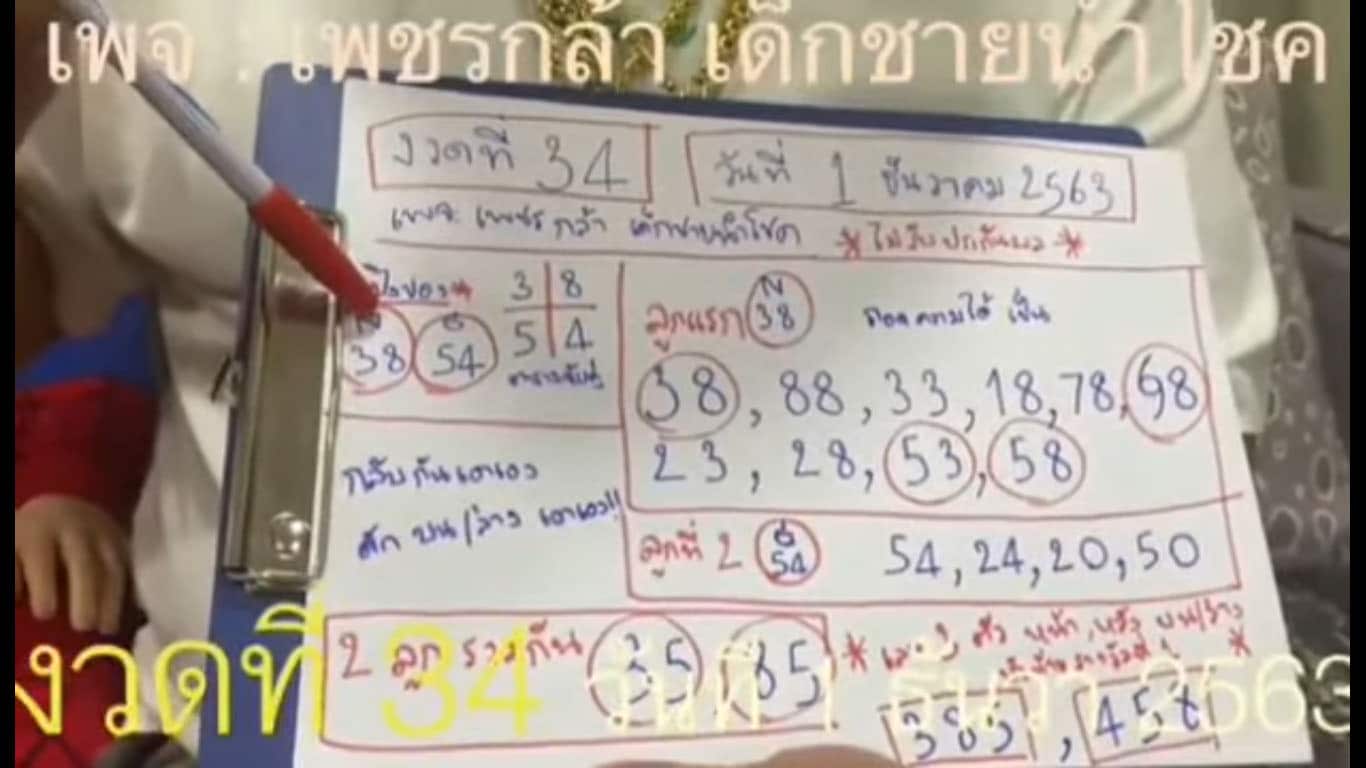 เพจ : เพชรกล้า เด็กชายนำโชค
งวดที่ 34
วันที่ 1 ธันวาคม 2563
เพจ: เพชรกล้า เด็กชายนำโชค *ไม่รับประกันผล*
N 38 54
3 8
5 4
ลูกแรก N 38 ถอดความได้ เป็น
38, 88, 33, 18, 78, 98
23, 28, 53, 58
กลับกันเอาเอง
ดัก บน/ล่าง เอาเอง!!
ลูกที่ 2 54 54, 24, 20, 50
2 ลูก รวมกัน 35 85
* หน้า, หลัง บน/ล่าง *
385, 458
งวดที่ 34 วันที่ 1 ธันวา 2563